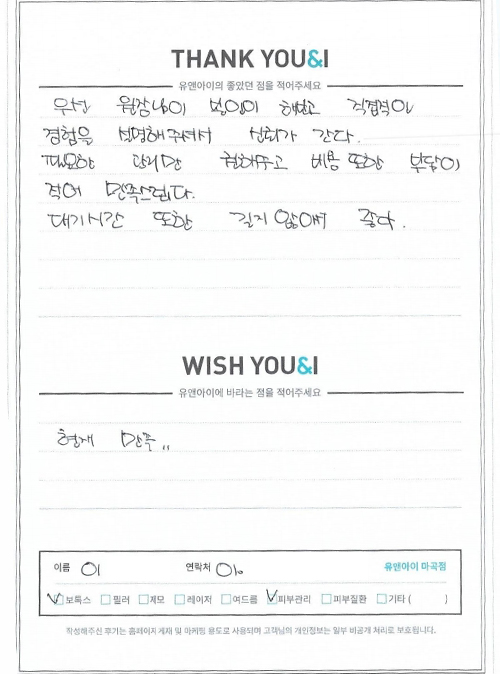 THANK YOU&I
유앤아이의 좋았던 점을 적어주세요
우선 원장님이 많이 해보고 직접적인
경험을 설명해주셔서 신뢰가 간다.
필요한 관리만 권해주고 비용 또한 부담이
적어 만족스럽다.
대기시간 또한 길지 않아서 좋다.
WISH YOU&I
유앤아이에 바라는 점을 적어주세요
현재 만족,,
이름 이 연락처 010 유앤아이 마곡점
보톡스 필러 제모 레이저 여드름 피부관리 피부질환 기타 ( )
작성해주신 후기는 홈페이지 게재 및 마케팅 용도로 사용되며 고객님의 개인정보는 일부 비공개 처리로 보호됩니다.